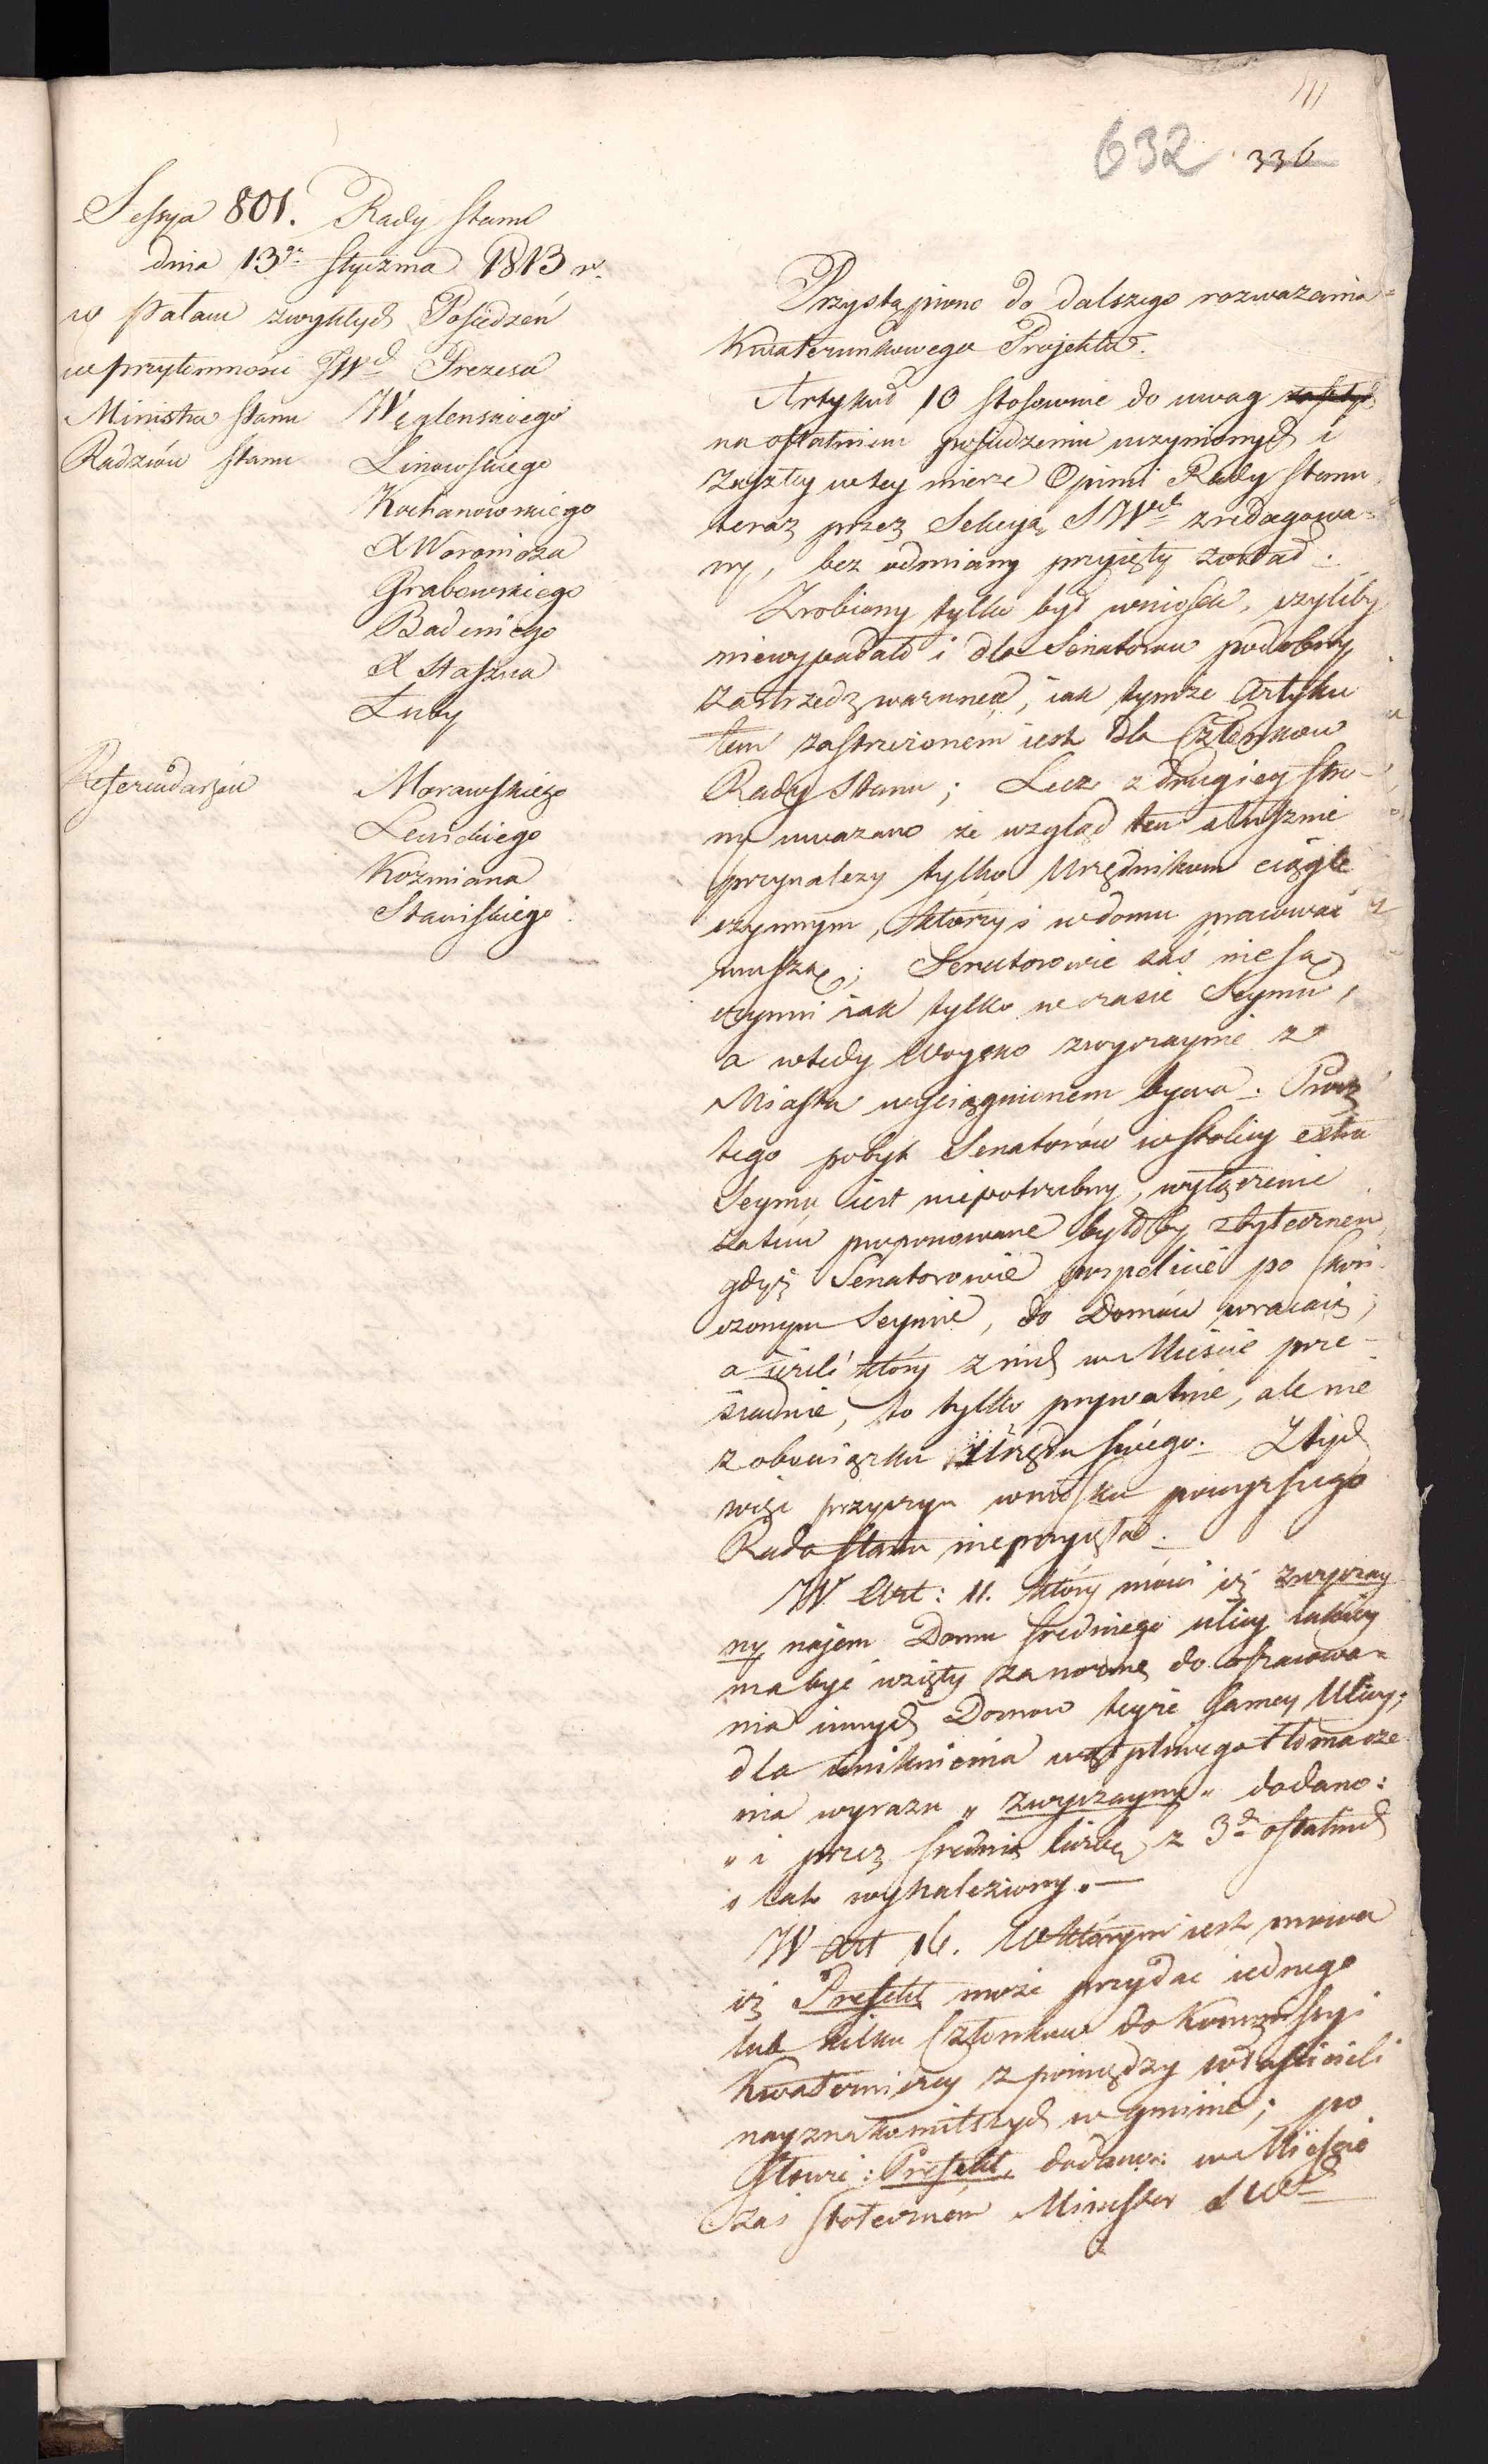 111
632 336
Sessya 801. Rady Stanu
dnia 13go Stycznia 1813 r.
w Pałacu zwykłych Posiedzeń
w przytomności JWch Prezesa
Ministra Stanu Węglenskiego
Radzców Stanu Linowskiego
Kochanowskiego
X Woronicza
Grabowskiego
Badeniego
X Staszica
Łuby
Referendarzów Morawskiego
Lewickiego
Kozmiana
Stawiskiego
Przystąpiono do dalszego rozwazania
Kwaterunkowego Projektu.
Artykuł 10 stosownie do uwag
na ostatniem posiedzeniu uczynionych i
zaszłey w tey mierze Opinii Rady Stanu
teraz przez Sekcyą SWch zredagowa=
ny, bez odmiany przyięty został.
Zrobiony tylko był wniosek, czyliby
niewypadało i dla Senatorow podobny
zastrzedz warunek, iak tymże Artyku
łem zastrzeżonem iest dla Członkow
Rady Stanu; Lecz z drugiey stro-
ny uwazano że wzgląd ten słusznie
przynalezy tylko Urzędnikom ciągle
czynnym, którzy i w domu pracować
muszą; Senatorowie zaś nie są
czynni iak tylko w czasie Seymu,
a wtedy Woysko zwyczaynie z
Miasta wyciągnionem bywa. Procz
tego pobyt Senatorów w Stolicy extra
Seymu iest niepotrzebny, wyłączenie
zatém proponowane było by zbytecznem,
gdyż Senatorowie pospolicie po skoń-
czonym Seymie, do Domów wracaią,
a ieżeli który z nich w Mieście prze-
siaduie, to tylko prywatnie, ale nie
z obowiązku Urzędu swiego. Z tych
więc przyczyn wniosku powyższego
Rada Stanu nieprzyięła.
W Art: 11. który mówi iż zwyczay
ny najem Domu średniego ulicy takiey
ma być wzięty za normę do oszacowa=
nia innych Domow teyże samey Ulicy;
dla uniknienia wątpliwego tłomacze
nia wyrazu „zwyczayny" dodano:
„i przez średnią liczbę z 3ch ostatnich
„lat wynaleziony."—
W art 16. W którym iest mowa
iż Prefekt może przydać iednego
lub kilku Członkow do Kommissyi
Kwaterniczey z pomiędzy właścicieli
nayznakomitszych w gminie; po
słowie: Prefekt, dodano: w Mieście
zaś stołecznem Minister SWch